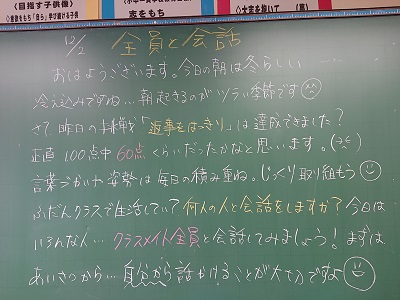 〈目指す子供像〉
◇意欲をもち「自ら」学び続ける子供
志をもち
◇大志を抱いて
12/2 全員と会話
おはようございます。今日の朝は冬らしい……
冷え込みですね…朝起きるのがツラい季節です
さて昨日の挑戦「返事をはっきり」は達成できました？
正直100点中60点くらいだったかなと思います。
言葉づかいや姿勢は毎日の積み重ね。じっくり取り組もう
ふだんクラスで生活していて何人の人と会話をしますか？今日は
いろんな人…クラスメイト全員と会話してみましょう！まずは
あいさつから…自分から話かけることが大切ですよ